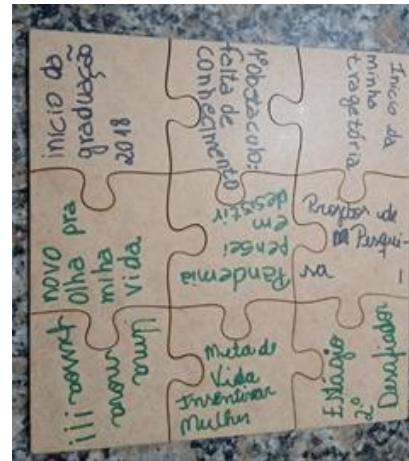 Inicio da
minha
tragetória
1º obstaculo:
falta de
conhecimento
inicio da
graduação
2018
Projetos de
Pesqui-
sa
Pandemia
pensei
em
desistir
novo pra
olha
milha
vida.
Estágio
2º
Desafiador
Meta de
Vida
Insentivar
Mulher
uma
nova